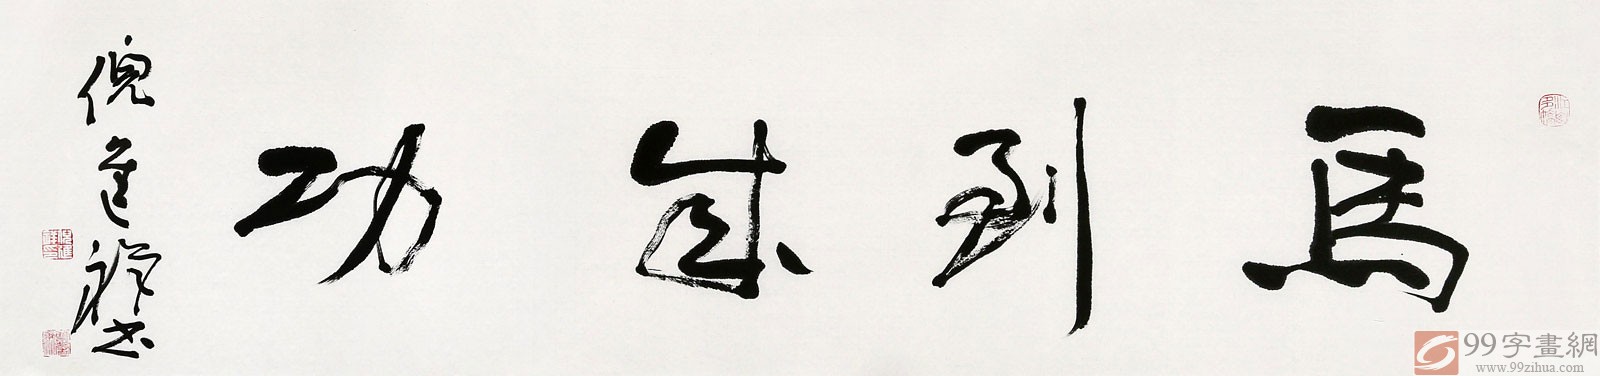 馬到成功
倪進祥书
99字畫網
www.99zihua.com